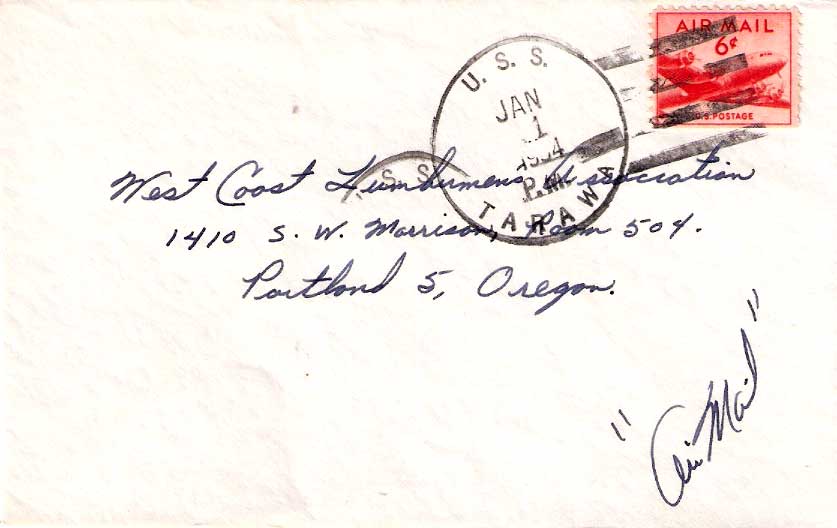 AIR MAIL
6¢
U.S. POSTAGE
U.S.S.
JAN
1954
P.M.
TARAWA
S.S.
West Coast Lumbermens Association
1410 S. W. Morrison, Room 504.
Portland 5, Oregon.
"Air Mail"